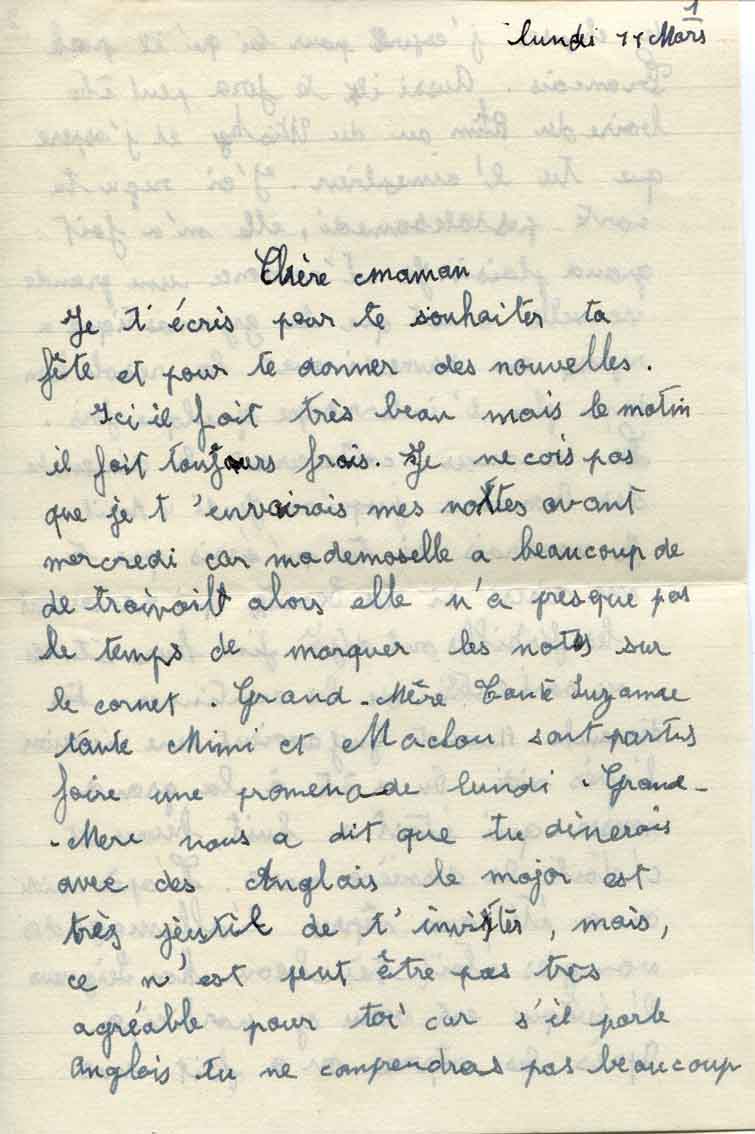 1
lundi 11 Mars
Chère maman
Je t'écris pour te souhaiter ta
fête et pour te donner des nouvelles.
Ici il fait très beau mais le matin
il fait toujours frais. Je ne cois pas
que je t'envairais mes nottes avant
mercredi car mademoselle a beaucoup de
de travailt alors elle n'a presque pas
le temps de marquer les notes sur
le cornet. Grand-Mère Tante Suzanne
tante Mimi et Maclou sont partus
faire une promenade lundi. Grand-
-Mere nous a dit que tu dînerais
avec des Anglais le major est
très jèutil de t'invitér, mais,
ce n'est peut être pas très
agréable pour toi car s'il parle
Anglais tu ne comprendras pas beaucoup